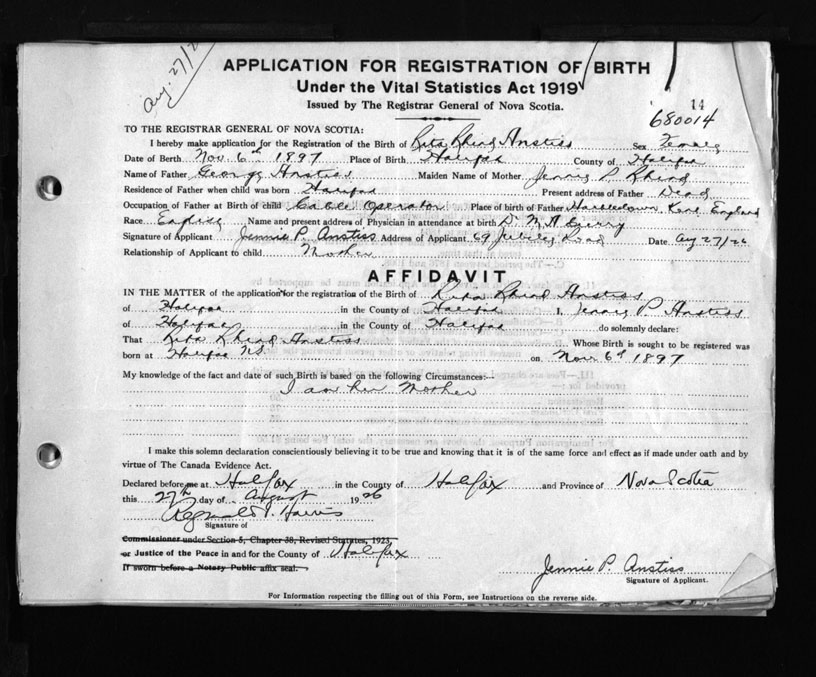 Aug. 27/2
APPLICATION FOR REGISTRATION OF BIRTH
Under the Vital Statistics Act 1919
Issued by The Registrar General of Nova Scotia.
14
680014
TO THE REGISTRAR GENERAL OF NOVA SCOTIA:
I hereby make application for the Registration of the Birth of Rita Rhind Anstiss Sex Female
Date of Berth Nov. 6th 1897 Place of Birth Halifax County of Halifax
Name of Father George Anstiss Maiden Name of Mother Jennie P. Rhind
Residence of Father when child was born Halifax Present address of Father Dead
Occupation of Father at Birth of child Cable Operator Place of birth of Father Kent England
Race English Name and present address of Physician in attendance at birth Dr.
Signature of Applicant Jennie P. Anstiss Address of Applicant 69 Jubilee Road Date Aug 27/26
Relationship of Applicant to child Mother
AFFIDAVIT
IN THE MATTER of the application for the registration of the Birth of Rita Rhind Anstiss
of Halifax in the County of Halifax I, Jennie P. Anstiss
of Halifax in the County of Halifax do solemnly declare:
That Rita Rhind Anstiss Whose Birth is sought to be registered was
born at Halifax N.S. on Nov. 6th 1897
My knowledge of the fact and date of such Birth is based on the following Circumstances:—
I am her Mother
I make this solemn declaration conscientiously believing it to be true and knowing that it is of the same force and effect as if made under oath and by
virtue of The Canada Evidence Act.
Declared before me at Halifax in the County of Halifax and Province of Nova Scotia
this 27th day of August 1926
Reginald V. Harris
Signature of
Commissioner under Section 5, Chapter 38, Revised Statutes, 1923,
or Justice of the Peace in and for the County of Halifax
If sworn before a Notary Public affix seal.
Jennie P. Anstiss
Signature of Applicant.
For Information respecting the filling out of this Form, see Instructions on the reverse side.